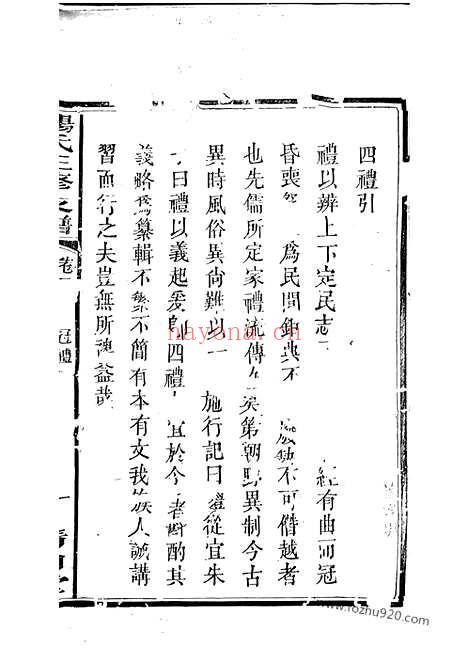 四禮引
禮以辨上下定民志 經有曲而冠
昏喪 為民間鉅典不 不可僭越者
也先儒所定家禮流傳 矣第朝野異制今古
異時風俗異尚難以一 施行記曰禮從宜朱
曰禮以義起爰 四禮 宜於今者斟酌其
義略為纂輯不繁不簡有本有文我族人誠講
習而行之夫豈無所 益哉
楊氏三修支譜 卷一 冠禮 一
hayona.cn
www.rozhu979.com